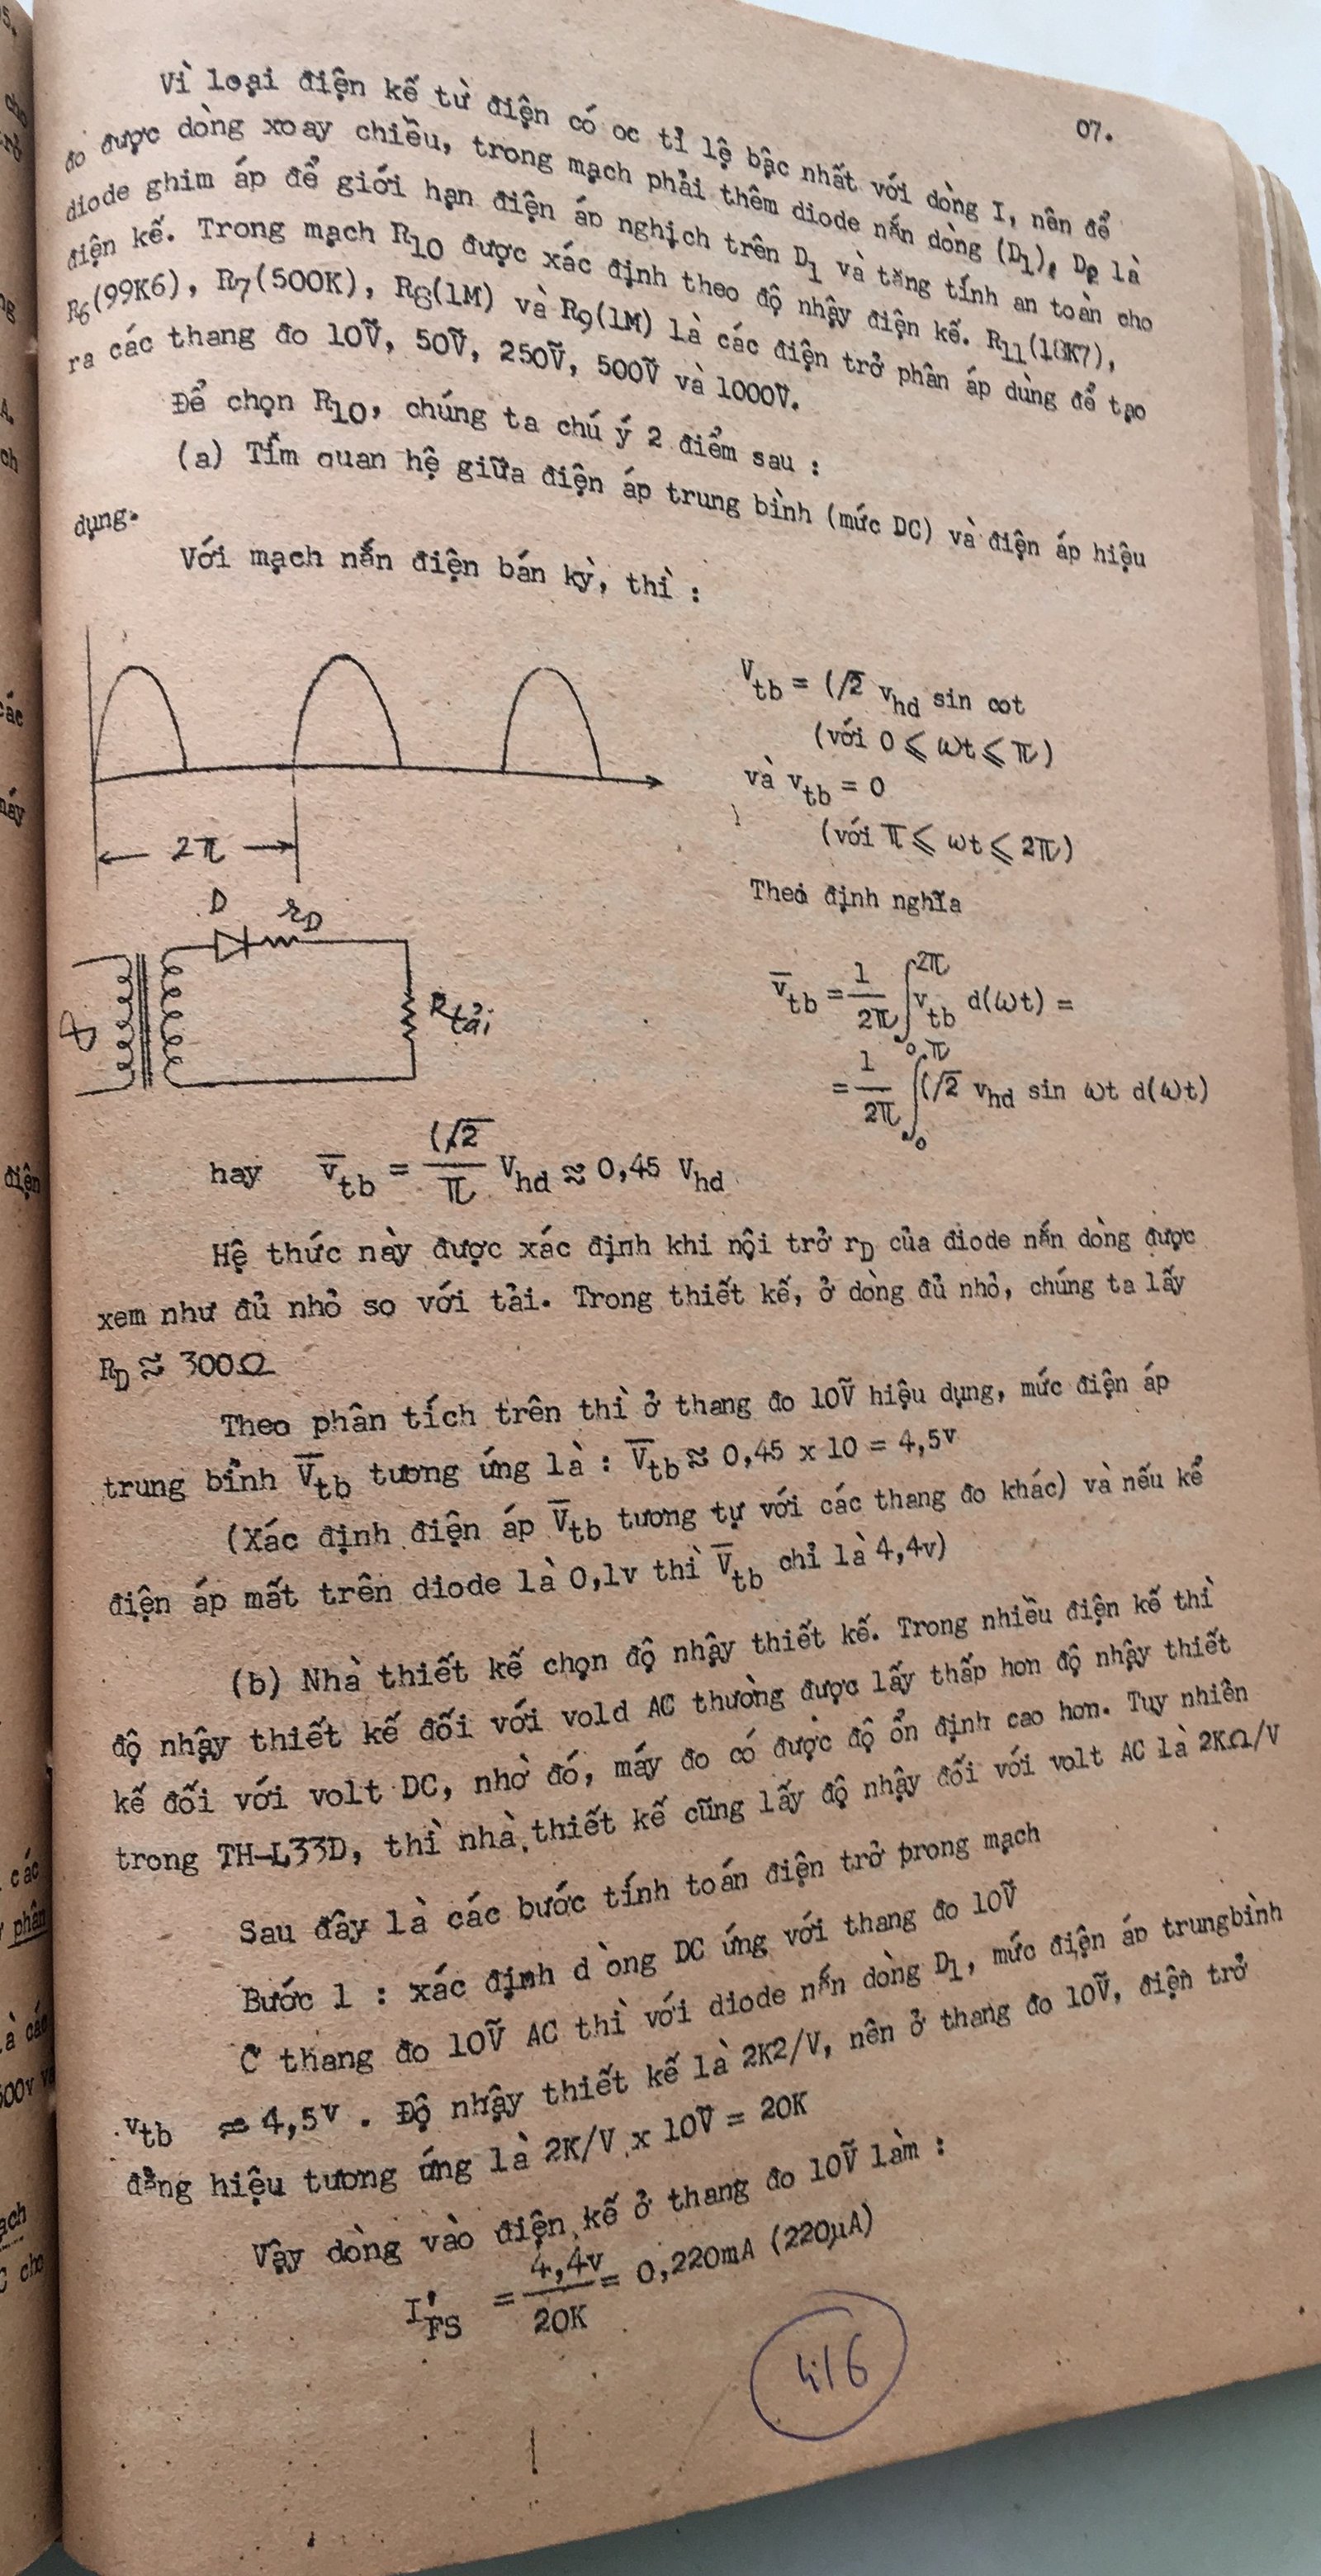 07.
Vì loại điện kế từ điện có oc tỉ lệ bậc nhất với dòng I, nên để
đo được dòng xoay chiều, trong mạch phải thêm diode nắn dòng (D1), D2 là
diode ghim áp để giới hạn điện áp nghịch trên D1 và tăng tính an toàn cho
điện kế. Trong mạch R10 được xác định theo độ nhậy điện kế. R11(18K7),
R6(99K6), R7(500K), R8(1M) và R9(1M) là các điện trở phân áp dùng để tạo
ra các thang đo 10Ṽ, 50Ṽ, 250Ṽ, 500Ṽ và 1000Ṽ.
Để chọn R10, chúng ta chú ý 2 điểm sau :
(a) Tìm quan hệ giữa điện áp trung bình (mức DC) và điện áp hiệu
dụng.
Với mạch nắn điện bán kỳ, thì :
2π
Vtb = (√2 vhd sin ωt
(với 0 ⩽ ωt ⩽ π)
và vtb = 0
(với π ⩽ ωt ⩽ 2π)
Theo định nghĩa
D rD
Rtải
v̅tb = 1/2π ∫₀^2π vtb d(ωt) =
= 1/2π ∫₀^π (√2 vhd sin ωt d(ωt)
hay v̅tb = (√2/π Vhd ≈ 0,45 Vhd
Hệ thức này được xác định khi nội trở rD của diode nắn dòng được
xem như đủ nhỏ so với tải. Trong thiết kế, ở dòng đủ nhỏ, chúng ta lấy
RD ≈ 300Ω
Theo phân tích trên thì ở thang đo 10Ṽ hiệu dụng, mức điện áp
trung bình V̅tb tương ứng là : V̅tb ≈ 0,45 x 10 = 4,5v
(Xác định điện áp V̅tb tương tự với các thang đo khác) và nếu kể
điện áp mất trên diode là 0,1v thì V̅tb chỉ là 4,4v)
(b) Nhà thiết kế chọn độ nhậy thiết kế. Trong nhiều điện kế thì
độ nhậy thiết kế đối với vold AC thường được lấy thấp hơn độ nhậy thiết
kế đối với volt DC, nhờ đó, máy đo có được độ ổn định cao hơn. Tuy nhiên
trong TH-L33D, thì nhà thiết kế cũng lấy độ nhậy đối với volt AC là 2KΩ/V
Sau đây là các bước tính toán điện trở prong mạch
Bước 1 : xác định dòng DC ứng với thang đo 10Ṽ
Ở thang đo 10Ṽ AC thì với diode nắn dòng D1, mức điện áp trungbình
vtb ≈ 4,5v . Độ nhậy thiết kế là 2K2/V, nên ở thang đo 10Ṽ, điện trở
đẳng hiệu tương ứng là 2K/V x 10Ṽ = 20K
Vậy dòng vào điện kế ở thang đo 10Ṽ làm :
I'FS = 4,4v/20K = 0,220mA (220μA)
416